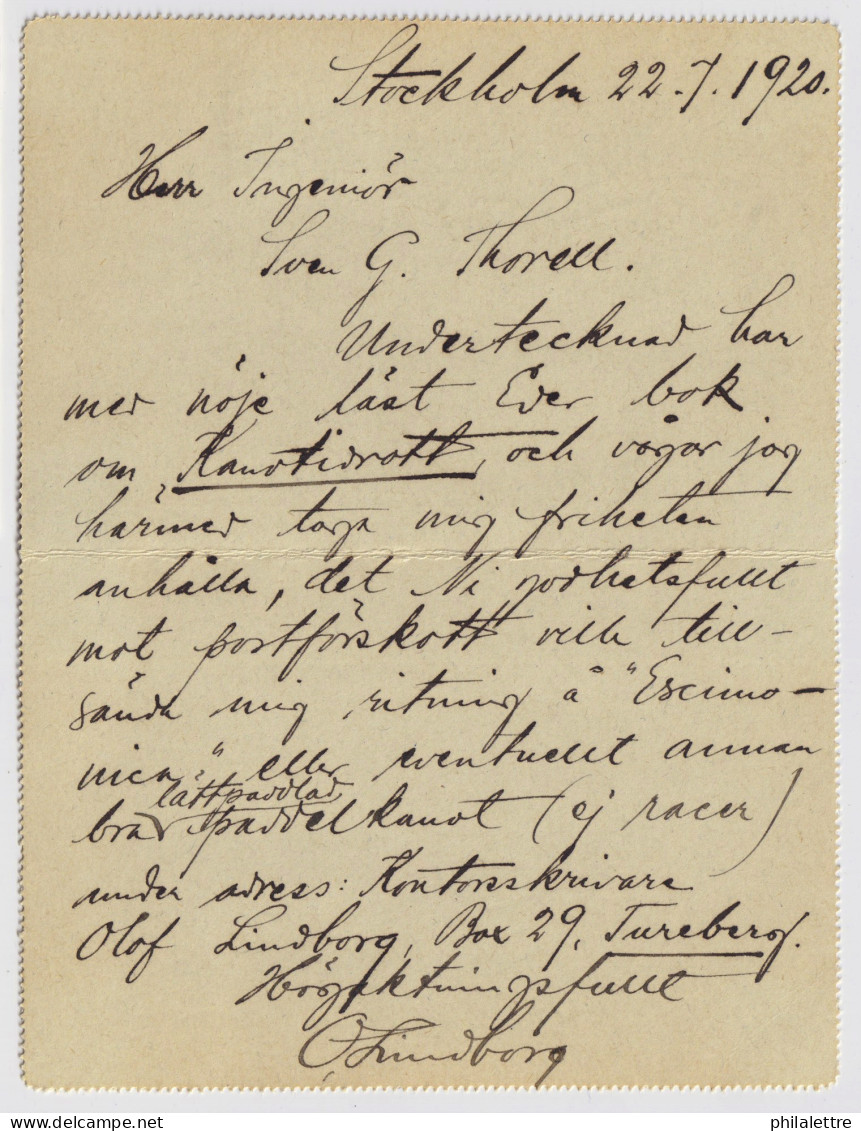 Stockholm 22.7.1920.
Herr Ingeniör
Sven G. Thorell.
Undertecknad har
med nöje läst Eder bok
om "Kanotidrott", och vågar jag
härmed taga mig friheten
anhålla, det Ni godhetsfullt
mot postförskott ville till-
sända mig ritning å "Escimo-
nica" eller eventuellt annan
lättpaddlad
bra paddelkanot (ej racer)
under adress: Kontorsskrivare
Olof Lindborg, Box 29, Tureberg.
Högaktningsfullt
O. Lindborg
philalettre